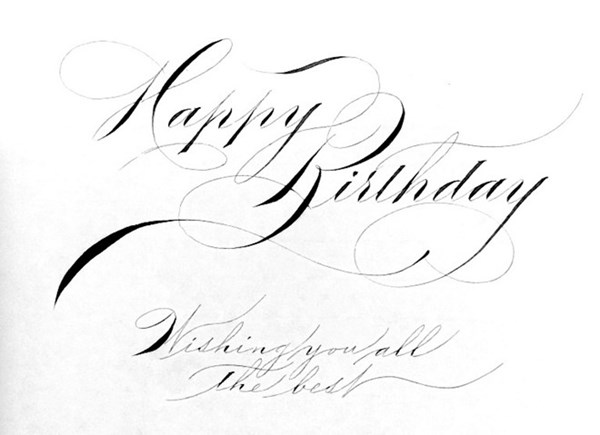 Happy
Birthday
Wishing you all
the best